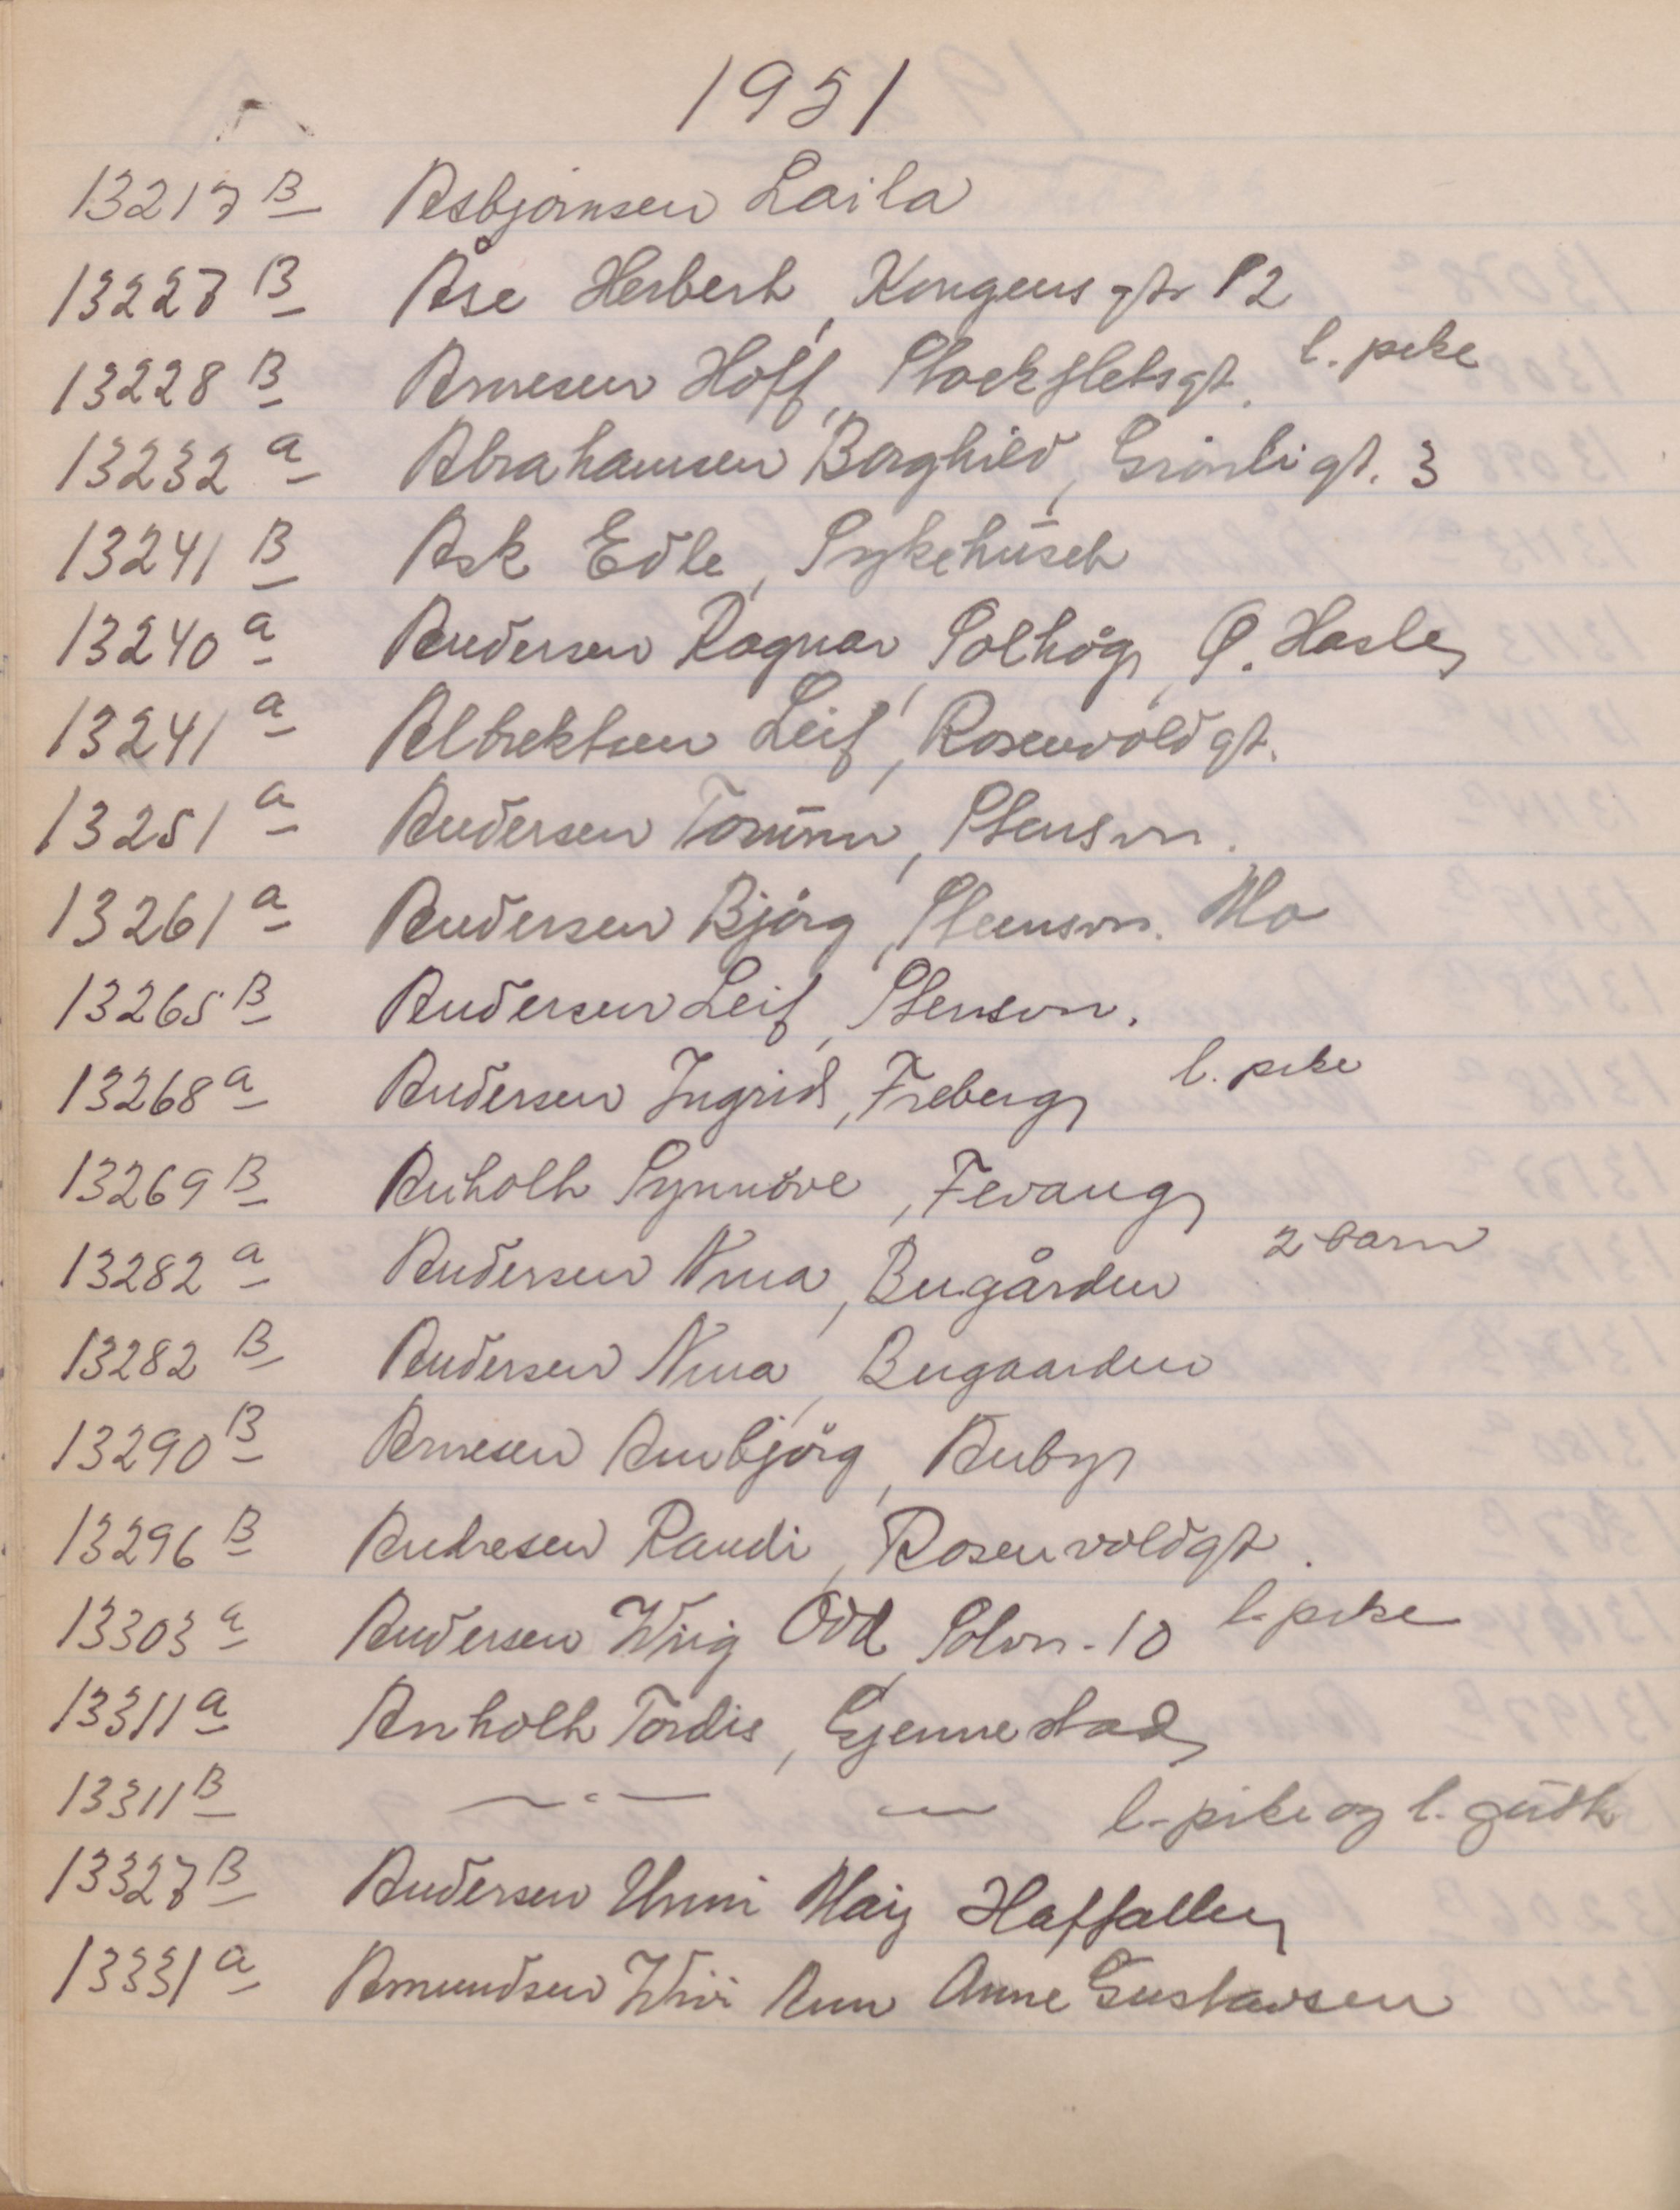 1951
13217 B Asbjørnsen Laila
13227 B Åse Herbert, Kongens gt. 12
13228 B Arnesen Hoff, Stockfletsgt. l. pike
13232 a Abrahamsen Borghild, Grønligt. 3
13241 B Ask Edle, Sykehuset
13240 a Andersen Ragnar, Solhøg, Ø. Hasle
13241 a Albrektsen Leif, Rosenvoldgt.
13251 a Andersen Stensvn.
13261 a Andersen Bjørg, Steensvn. Mo
13265 B Andersen Leif, Stensvn.
13268 a Andersen Ingrid, Freberg l. pike
13269 B Anholt Synnøve, Fevang
13282 a Andersen Nina, Bugården 2 barn
13282 B Andersen Nina, Bugaarden
13290 B Arnesen Annbjørg, Aaby
13296 B Andresen Randi, Rosenvoldgt.
13303 a Andersen Wiig Odd, Solvn. 10 l. pike
13311 a Anholt Tordis, Gjennestad
13311 B — " — — l. pike og l. gutt
13327 B Andersen Unni Maij
13331 a Amundsen Wivi Ann Anne Gustavsen